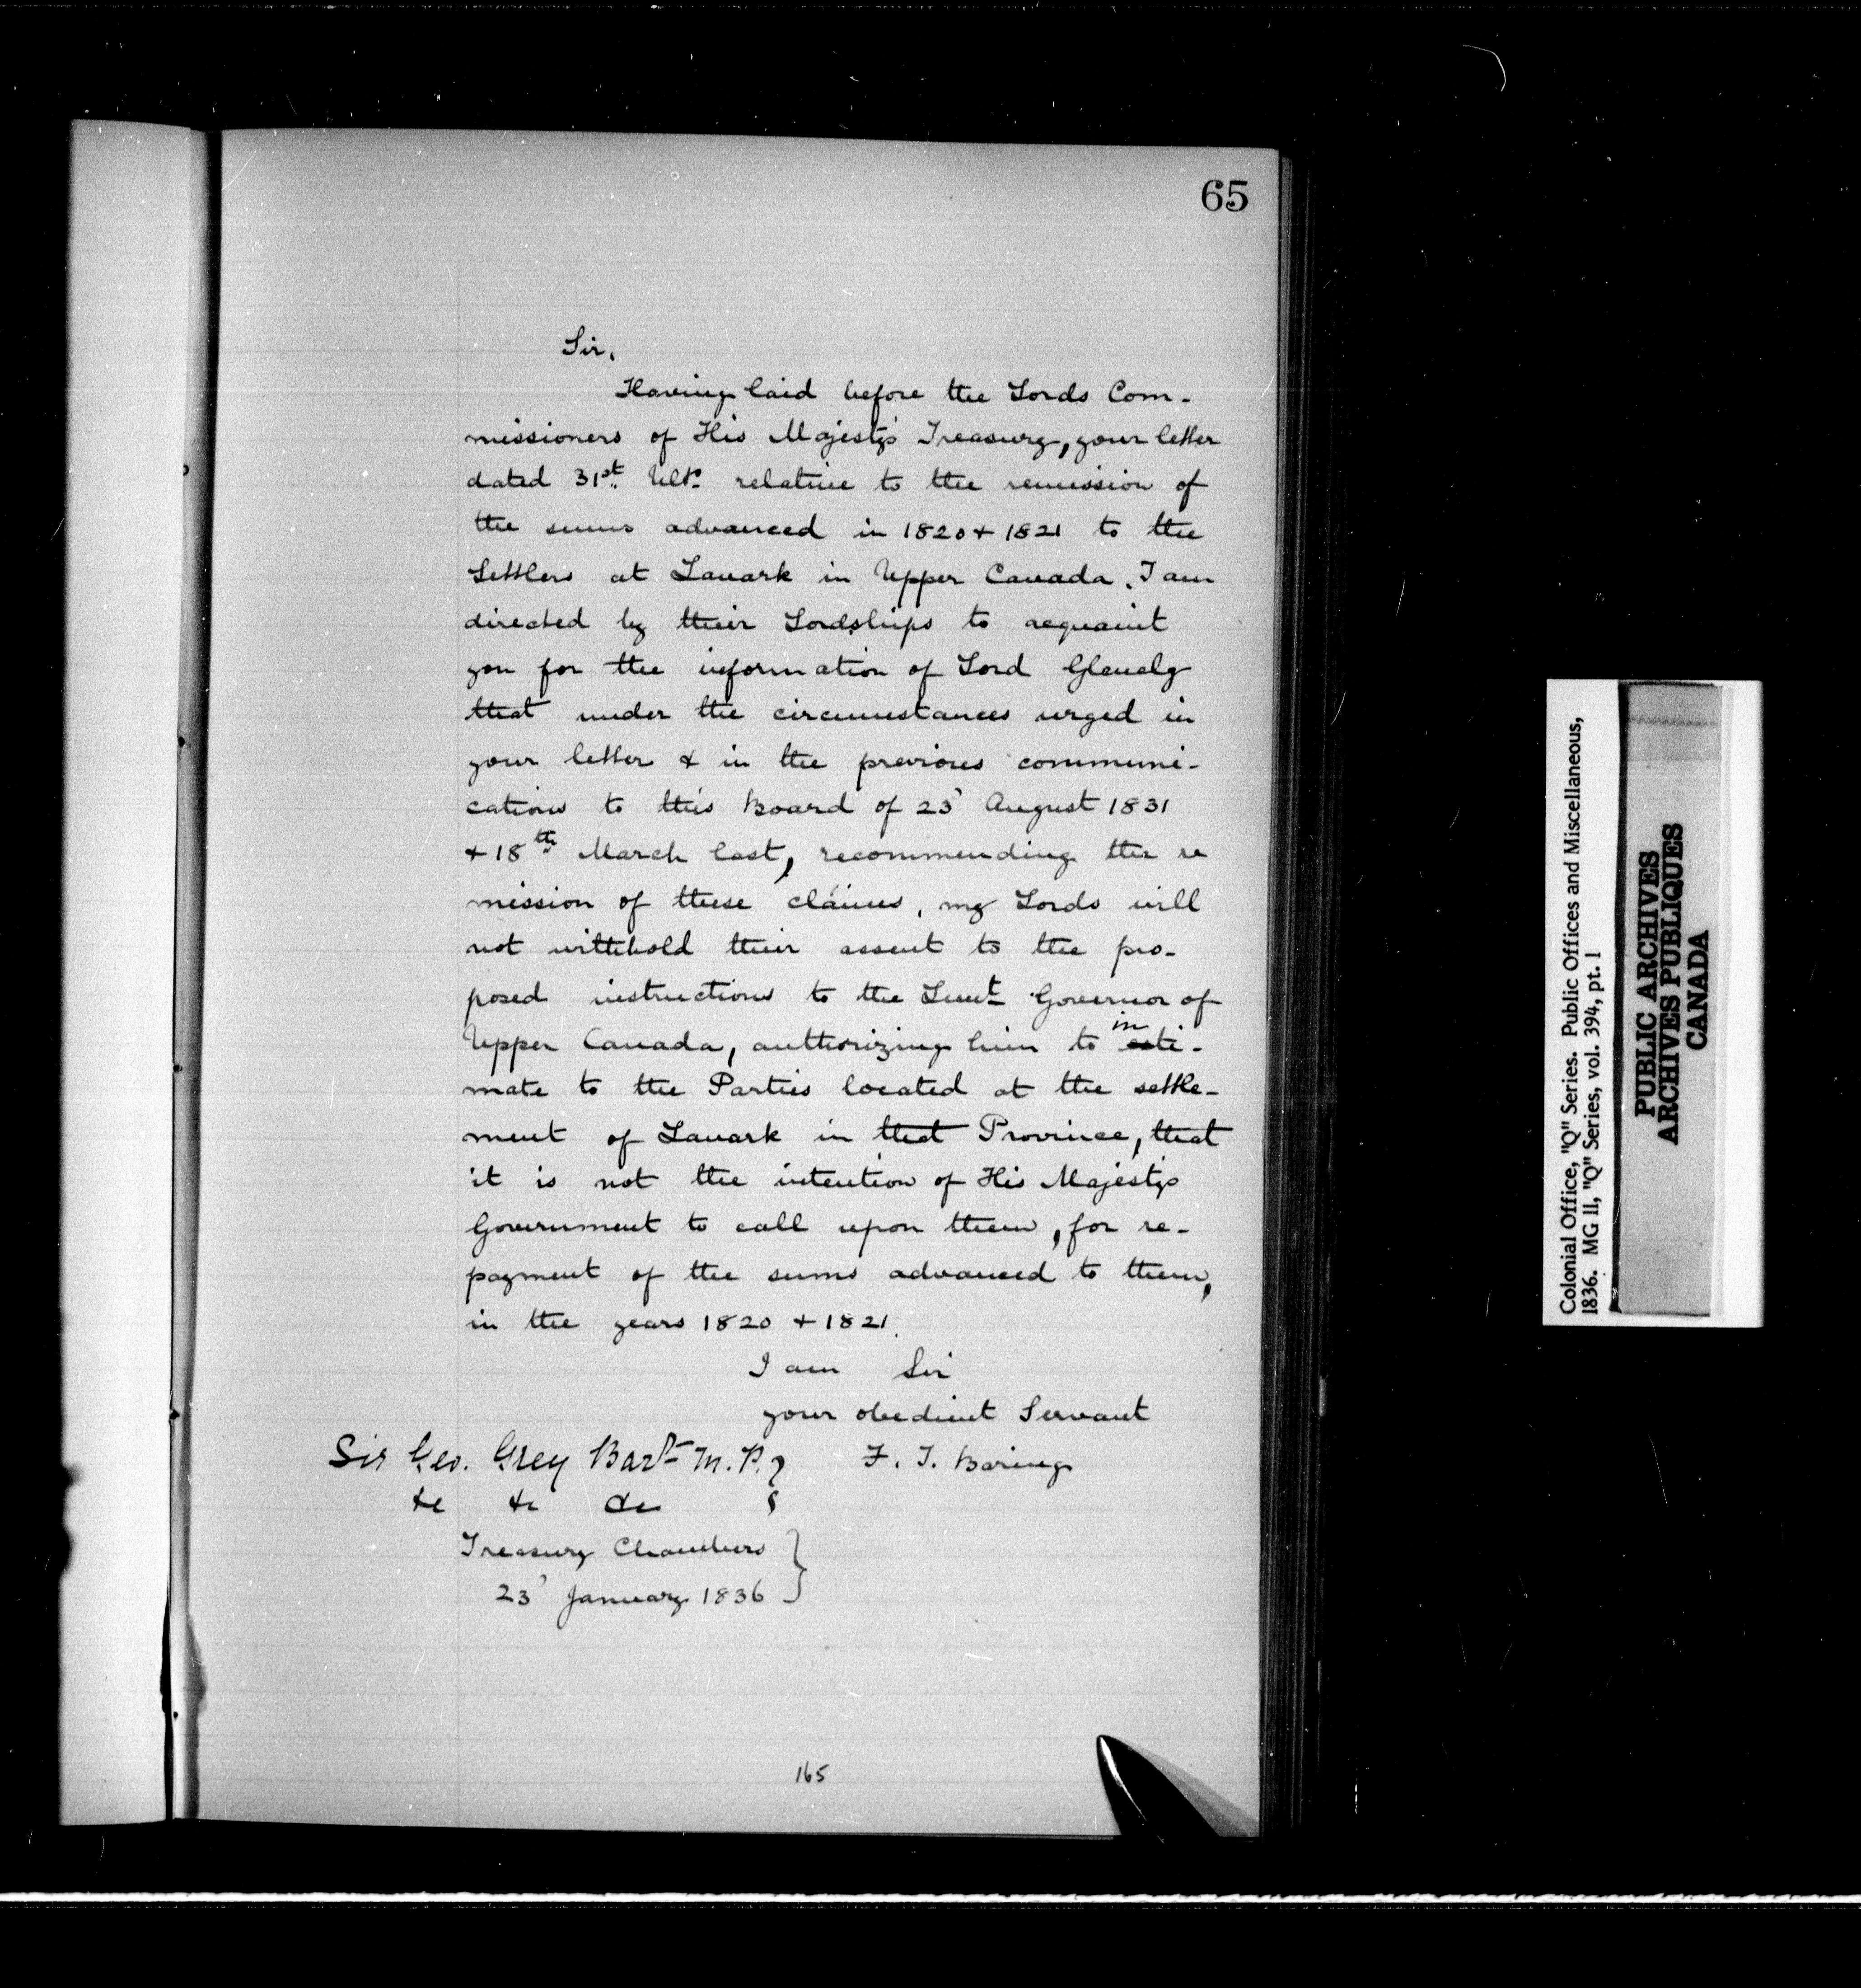 65
Sir,
Having laid before the Lords Com-
missioners of His Majesty's Treasury, your letter
dated 31st Ulto. relative to the remission of
the sums advanced in 1820 & 1821 to the
Settlers at Lanark in Upper Canada. I am
directed by their Lordships to acquaint
you for the information of Lord Glenelg
that under the circumstances urged in
your letter & in the previous communi-
cations to this Board of 23' August 1831
& 18th March last, recommending the re
mission of these claims, my Lords will
not withhold their assent to the pro-
posed instructions to the Lieut Governor of
in
Upper Canada, authorizing him to esti-
mate to the Parties located at the settle-
ment of Lanark in that Province, that
it is not the intention of His Majesty's
Government to call upon them, for re-
payment of the sums advanced to them,
in the years 1820 & 1821.
I am Sir
your obedient Servant
Sir Geo. Grey Bart M.P. }
F. T. Baring
&c &c &c
Treasury Chambers }
23' January 1836
165
Colonial Office, "Q" Series. Public Offices and Miscellaneous,
1836. MG 11, "Q" Series, vol. 394, pt. 1
PUBLIC ARCHIVES
ARCHIVES PUBLIQUES
CANADA